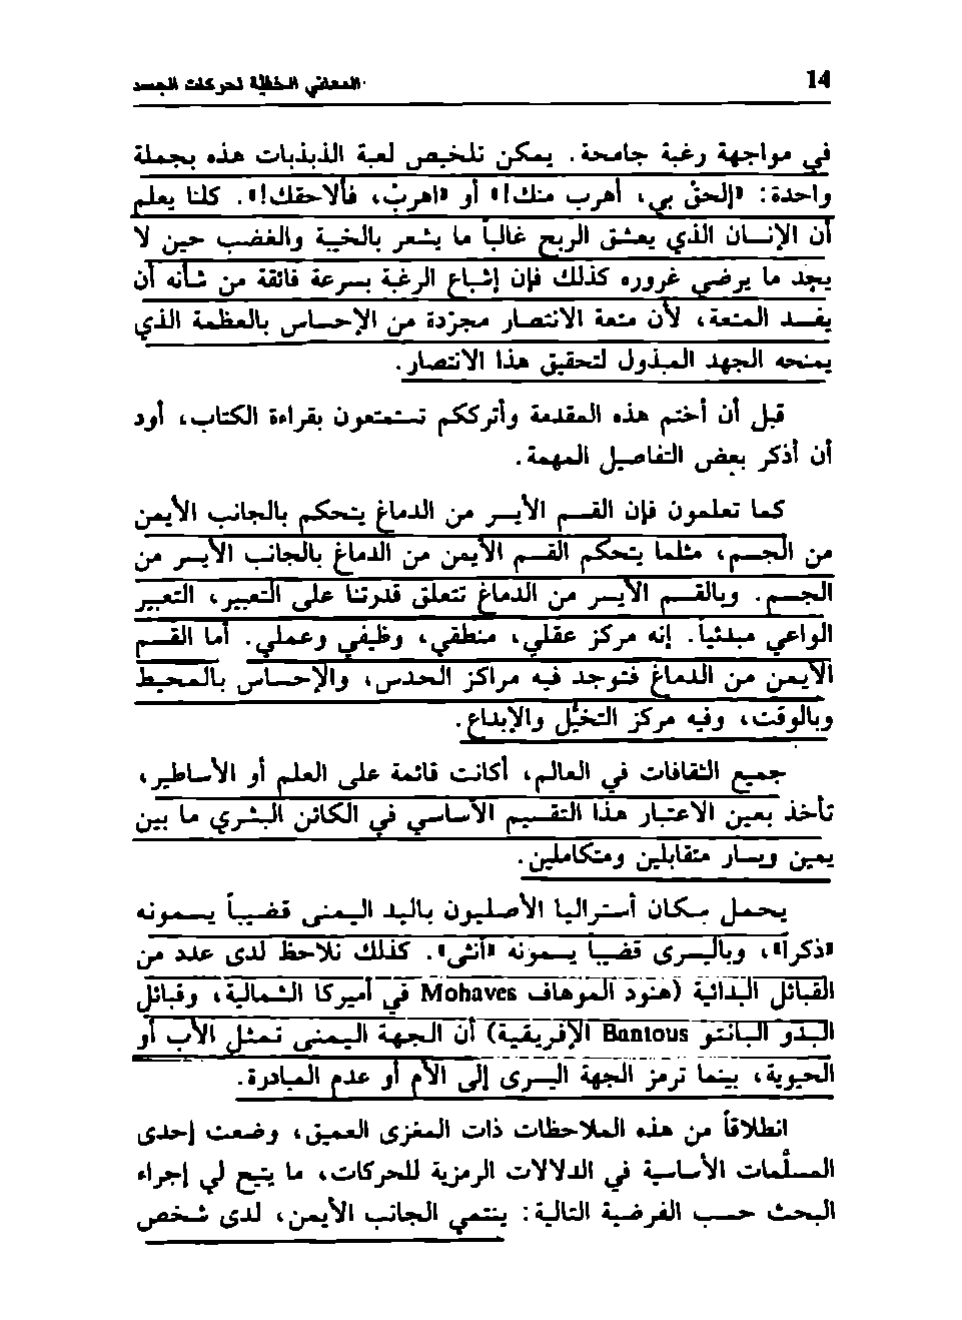 14
المعاني الخفيّة لحركات الجسد
في مواجهة رغبة جامحة. يمكن تلخيص لعبة الذبذبات هذه بجملة
واحدة: «إلحقْ بي، أهرب منك!» أو «اهربْ، فألاحقك!». كلنا يعلم
أن الإنسان الذي يعشق الربح غالباً ما يشعر بالخيبة والغضب حين لا
يجد ما يرضي غروره كذلك فإن إشباع الرغبة بسرعة فائقة من شأنه أن
يفسد المتعة، لأن متعة الانتصار مجرّدة من الإحساس بالعظمة الذي
يمنحه الجهد المبذول لتحقيق هذا الانتصار.
قبل أن أختم هذه المقدمة وأترككم تستمتعون بقراءة الكتاب، أود
أن أذكر بعض التفاصيل المهمة.
كما تعلمون فإن القسم الأيسر من الدماغ يتحكم بالجانب الأيمن
من الجسم، مثلما يتحكم القسم الأيمن من الدماغ بالجانب الأيسر من
الجسم. وبالقسم الأيسر من الدماغ تتعلق قدرتنا على التعبير، التعبير
الواعي مبدئياً. إنه مركز عقلي، منطقي، وظيفي وعملي. أما القسم
الأيمن من الدماغ فتوجد فيه مراكز الحدس، والإحساس بالمحيط
وبالوقت، وفيه مركز التخيُّل والإبداع.
جميع الثقافات في العالم، أكانت قائمة على العلم أو الأساطير،
تأخذ بعين الاعتبار هذا التقسيم الأساسي في الكائن البشري ما بين
يمين ويسار متقابلين ومتكاملين.
يحمل سكان أستراليا الأصليون باليد اليمنى قضيباً يسمونه
«ذكراً»، وباليسرى قضيباً يسمونه «أنثى». كذلك نلاحظ لدى عدد من
القبائل البدائية (هنود الموهاف Mohaves في أميركا الشمالية، وقبائل
البدو البانتو Bantous الإفريقية) أن الجهة اليمنى تمثل الأب أو
الحيوية، بينما ترمز الجهة اليسرى إلى الأم أو عدم المبادرة.
انطلاقاً من هذه الملاحظات ذات المغزى العميق، وضعت إحدى
المسلّمات الأساسية في الدلالات الرمزية للحركات، ما يتيح لي إجراء
البحث حسب الفرضية التالية: ينتمي الجانب الأيمن، لدى شخص